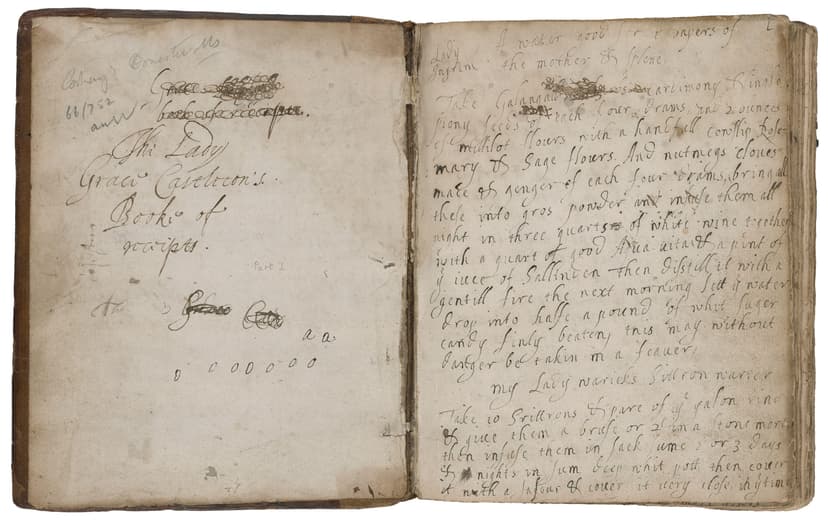 Domestic Ms
Cookery
The Lady
Grace Casteltcon's
Booke of
receipts.
Part I
a a
o o o o o o o
Lady
Ingram
A water good for vapers of
the mother & Splene
Take Galangal
piony seeds each four Drams, and 2 ounces
of millilot flours with a handfull Couslip Rose-
mary & Sage flours, And nutmegs cloves
mace & genger of each four drams, bring all
these into gros powder and infuse them all
night in three quarts of white wine together
with a quart of good Aqua vita & a pint of
yᵉ iuce of Sallindon then distill it with a
gentill fire the next morning Lett yᵉ water
drop into halfe a pound of whit suger
candy finly beaten, this may without
danger be takin in a feauer,
My Lady waricks Sittron watter
Take 10 Sittrons & pare of yᵉ yalow rine
& give them a bruse or 2 in a stone morter
then infuse them in Sack 2 or 3 days
& nights in sum deep whit pott then cover
it with a & cover it very close